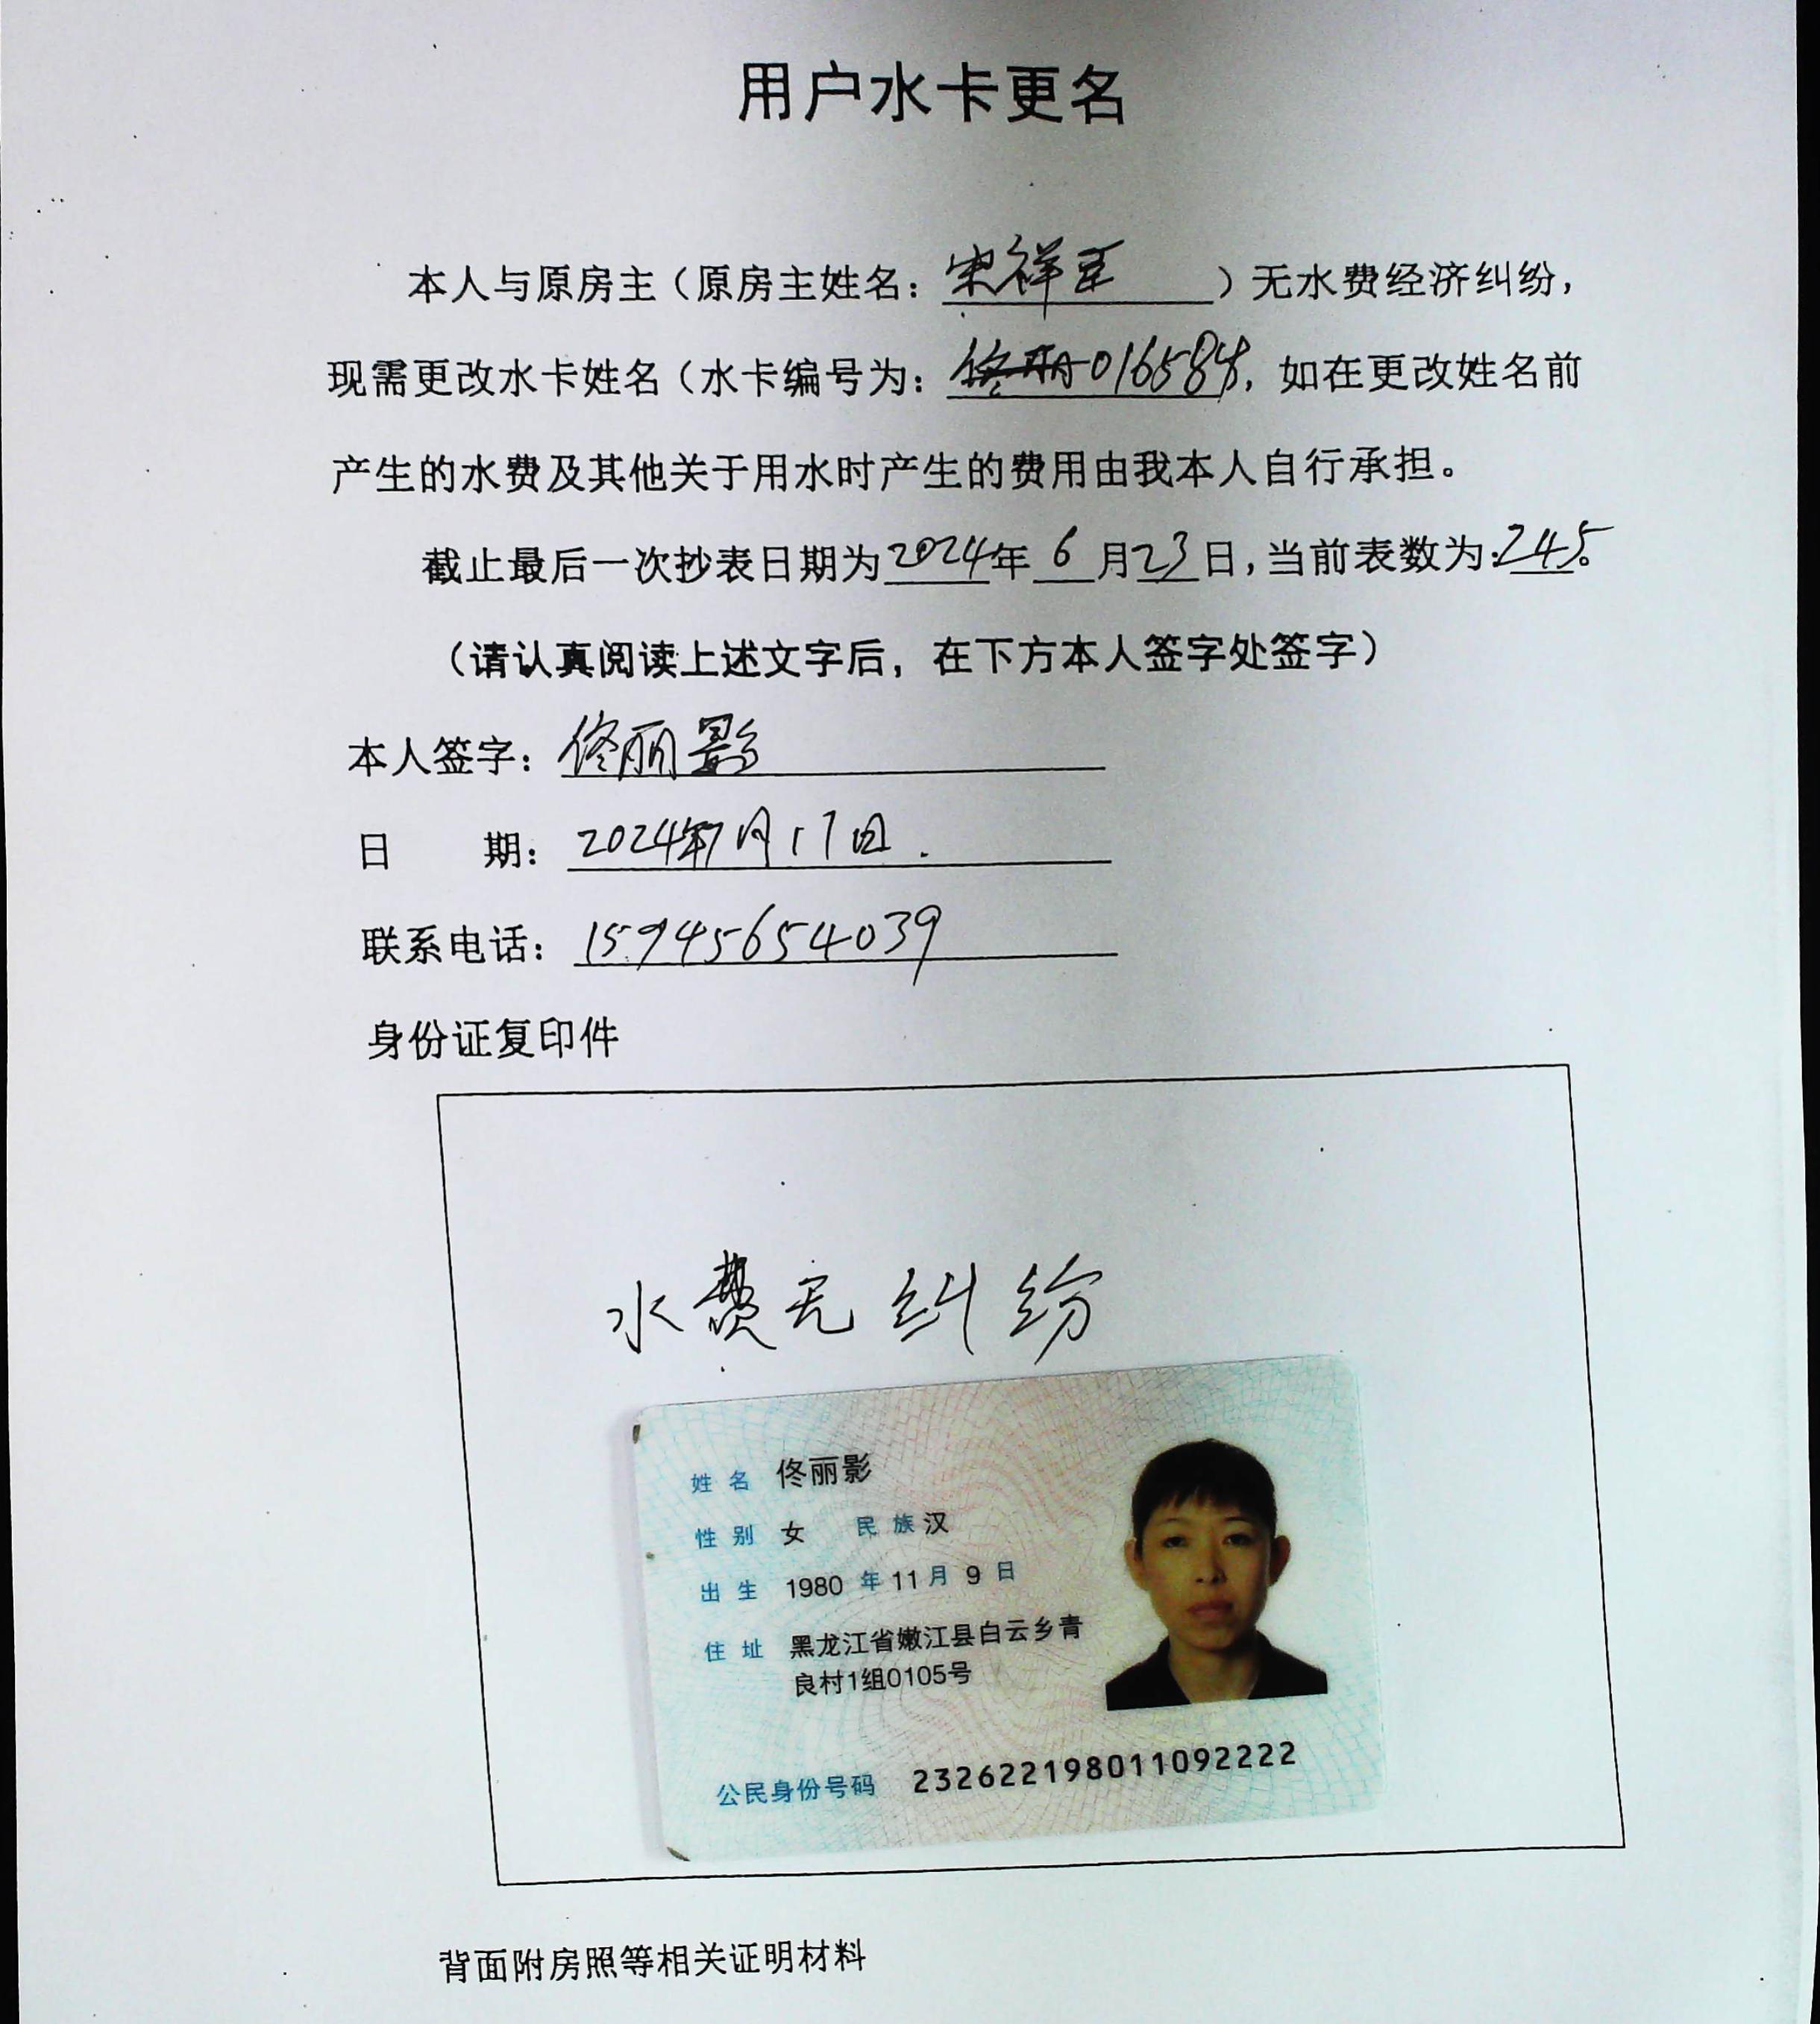 用户水卡更名
本人与原房主（原房主姓名：宋祥）无水费经济纠纷，
现需更改水卡姓名（水卡编号为：016584，如在更改姓名前
产生的水费及其他关于用水时产生的费用由我本人自行承担。
截止最后一次抄表日期为2024年6月23日，当前表数为：245。
（请认真阅读上述文字后，在下方本人签字处签字）
本人签字：佟丽影
日 期：2024年7月17日.
联系电话：15945654039
身份证复印件
水费无纠纷
姓名 佟丽影
性别 女 民族 汉
出生 1980年11月9日
住址 黑龙江省嫩江县白云乡青
良村1组0105号
公民身份号码 232622198011092222
背面附房照等相关证明材料